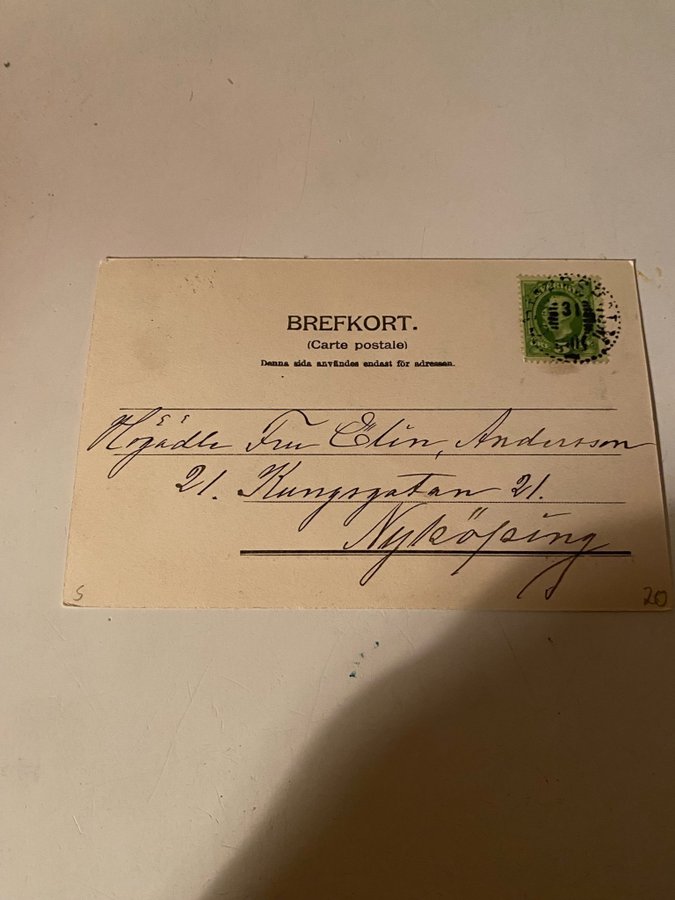 BREFKORT.
(Carte postale)
Denna sida användes endast för adressen.
SVERIGE
31
Högädle Fru Elin, Andersson
21. Kungsgatan 21.
Nyköping
S 20